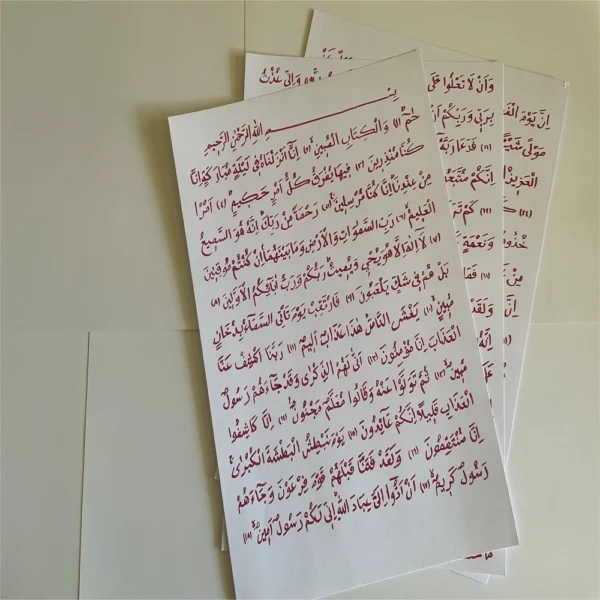 بِسْمِ اللّٰهِ الرَّحْمٰنِ الرَّحِيمِ
حٰمٓ (١) وَالْكِتَابِ الْمُبِينِ (٢) اِنَّٓا اَنْزَلْنَاهُ فِى لَيْلَةٍ مُبَارَكَةٍ اِنَّا
كُنَّا مُنْذِرِينَ (٣) فِيهَا يُفْرَقُ كُلُّ اَمْرٍ حَكِيمٍ (٤) اَمْرًا
مِنْ عِنْدِنَا اِنَّا كُنَّا مُرْسِلِينَ (٥) رَحْمَةً مِنْ رَبِّكَ اِنَّهُ هُوَ السَّمِيعُ
الْعَلِيمُ (٦) رَبِّ السَّمٰوَاتِ وَالْاَرْضِ وَمَا بَيْنَهُمَا اِنْ كُنْتُمْ مُوقِنِينَ
(٧) لَٓا اِلٰهَ اِلَّا هُوَ يُحْيِى وَيُمِيتُ رَبُّكُمْ وَرَبُّ اٰبَٓائِكُمُ الْاَوَّلِينَ (٨)
بَلْ هُمْ فِى شَكٍّ يَلْعَبُونَ (٩) فَارْتَقِبْ يَوْمَ تَاْتِى السَّمَٓاءُ بِدُخَانٍ
مُبِينٍ (١٠) يَغْشَى النَّاسَ هٰذَا عَذَابٌ اَلِيمٌ (١١) رَبَّنَا اكْشِفْ عَنَّا
الْعَذَابَ اِنَّا مُؤْمِنُونَ (١٢) اَنّٰى لَهُمُ الذِّكْرٰى وَقَدْ جَٓاءَهُمْ رَسُولٌ
مُبِينٌ (١٣) ثُمَّ تَوَلَّوْا عَنْهُ وَقَالُوا مُعَلَّمٌ مَجْنُونٌ (١٤) اِنَّا كَاشِفُوا
الْعَذَابِ قَلِيلًا اِنَّكُمْ عَٓائِدُونَ (١٥) يَوْمَ نَبْطِشُ الْبَطْشَةَ الْكُبْرٰى
اِنَّا مُنْتَقِمُونَ (١٦) وَلَقَدْ فَتَنَّا قَبْلَهُمْ قَوْمَ فِرْعَوْنَ وَجَٓاءَهُمْ
رَسُولٌ كَرِيمٌ (١٧) اَنْ اَدُّٓوا اِلَىَّ عِبَادَ اللّٰهِ اِنِّى لَكُمْ رَسُولٌ اَمِينٌ (١٨)
وَاَنْ لَا تَعْلُوا عَلَى
وَاِنِّى عُذْتُ
بِرَبِّى وَرَبِّكُمْ اَنْ
فَدَعَا رَبَّهُ
اِنَّكُمْ مُتَّبَعُونَ
كَمْ تَرَ
وَنَعْمَةٍ
وَلَقَدْ
اِنَّ يَوْمَ الْفَ
مَوْلًى شَيْئًا
الْعَزِيزُ
خُذُوهُ
مِنْ
اِنَّ